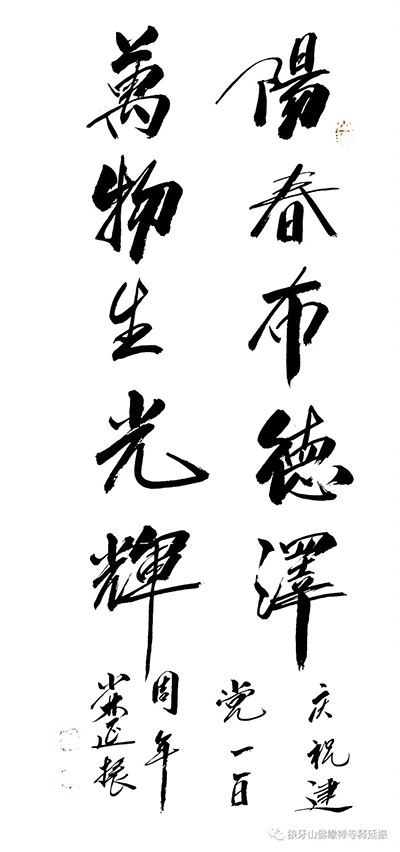 陽春布德澤
萬物生光輝
庆祝建
党一百
周年
少林延振
狼牙山佛缘禅寺释延振